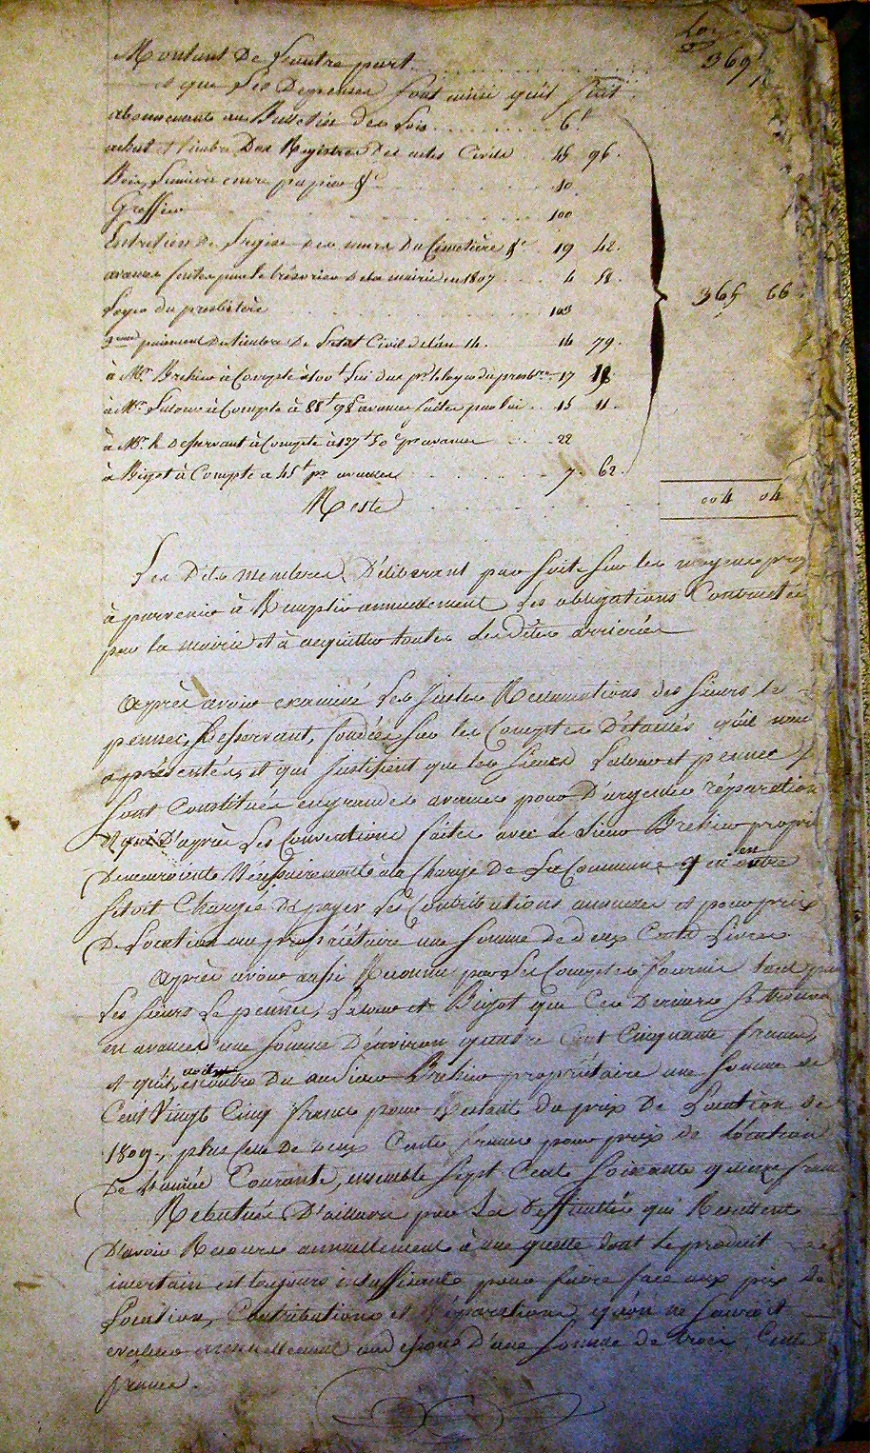 369
Montant De L'autre part
et que Les Depenses Sont ainsi qu'il Suit
abonnement au Bulletin des Lois 6
achat et timbre Des Registres Des actes Civils 45 96
Bois, Lumiere encre papier &c 10
Greffier 100
Entretien De L'eglise des murs Du Cimetière &c 19 42
avances faites par le trésorier De la mairie en 1807 4 58
Loyer du presbitère 103
paiement Du timbre De L'etat Civil de l'an 14 14 79
à Mr Brehier à Compte à 100 Lui dus pr le loyer du presbre 17 18
à Mr à Compte à 88 98 avances faites par lui 15 11
à Mr le Desservant à Compte à 127 50 pr avances 22
à Bigot à Compte a 45 pr avances 7 62
365 66
Reste 004 04
Les Dits membres Délibérant par Suite Sur les moyens
à parvenir à Remplir annuellement Les obligations Contractées
par la mairie et à acquitter toutes Les Dètes arrièrées
Après avoir examiné Les justes Réclamations des Sieurs Le
pennec, Desservant, fondées Sur les Comptes Détaillés qu'ils nous
a présentés, et qui justifient que les Sieurs et pennec
Sont Constitués en grandes avances pour D'urgentes réparations
D'après Les Conventions faites avec le Sieur Brehier
Demeurante Nécessairement à la Charge De La Commune en outre
Setoit Chargée De payer Les Contributions annuelles et pour prix
De Location au propriétaire une Somme de deux Cents Livres
Après avoir aussi Reconnu par Les Comptes fournis tant par
Les Sieurs Le pennec, et Bigot que Ces Derniers Se trouvent
en avances d'une Somme D'environ quatre Cent Cinquante francs,
et qu'il en outre Du au Sieur Brehier propriétaire une Somme de
Cent Vingt Cinq francs pour Restant du prix De Location de
1809, plus Celle De Deux Cents francs pour prix de Location
De L'année Courante, ensemble Sept Cents Soixante quinze francs
Rebutés D'ailleurs par Les Difficultés qui Resultent
D'avoir Recours annuellement à une quette dont le produit
incertain est toujours insuffisante pour faire face aux prix De
Location, Contributions et Réparations, qu'on ne Sauroit
evaluer annuellement au dessous D'une Somme de trois Cents
francs.